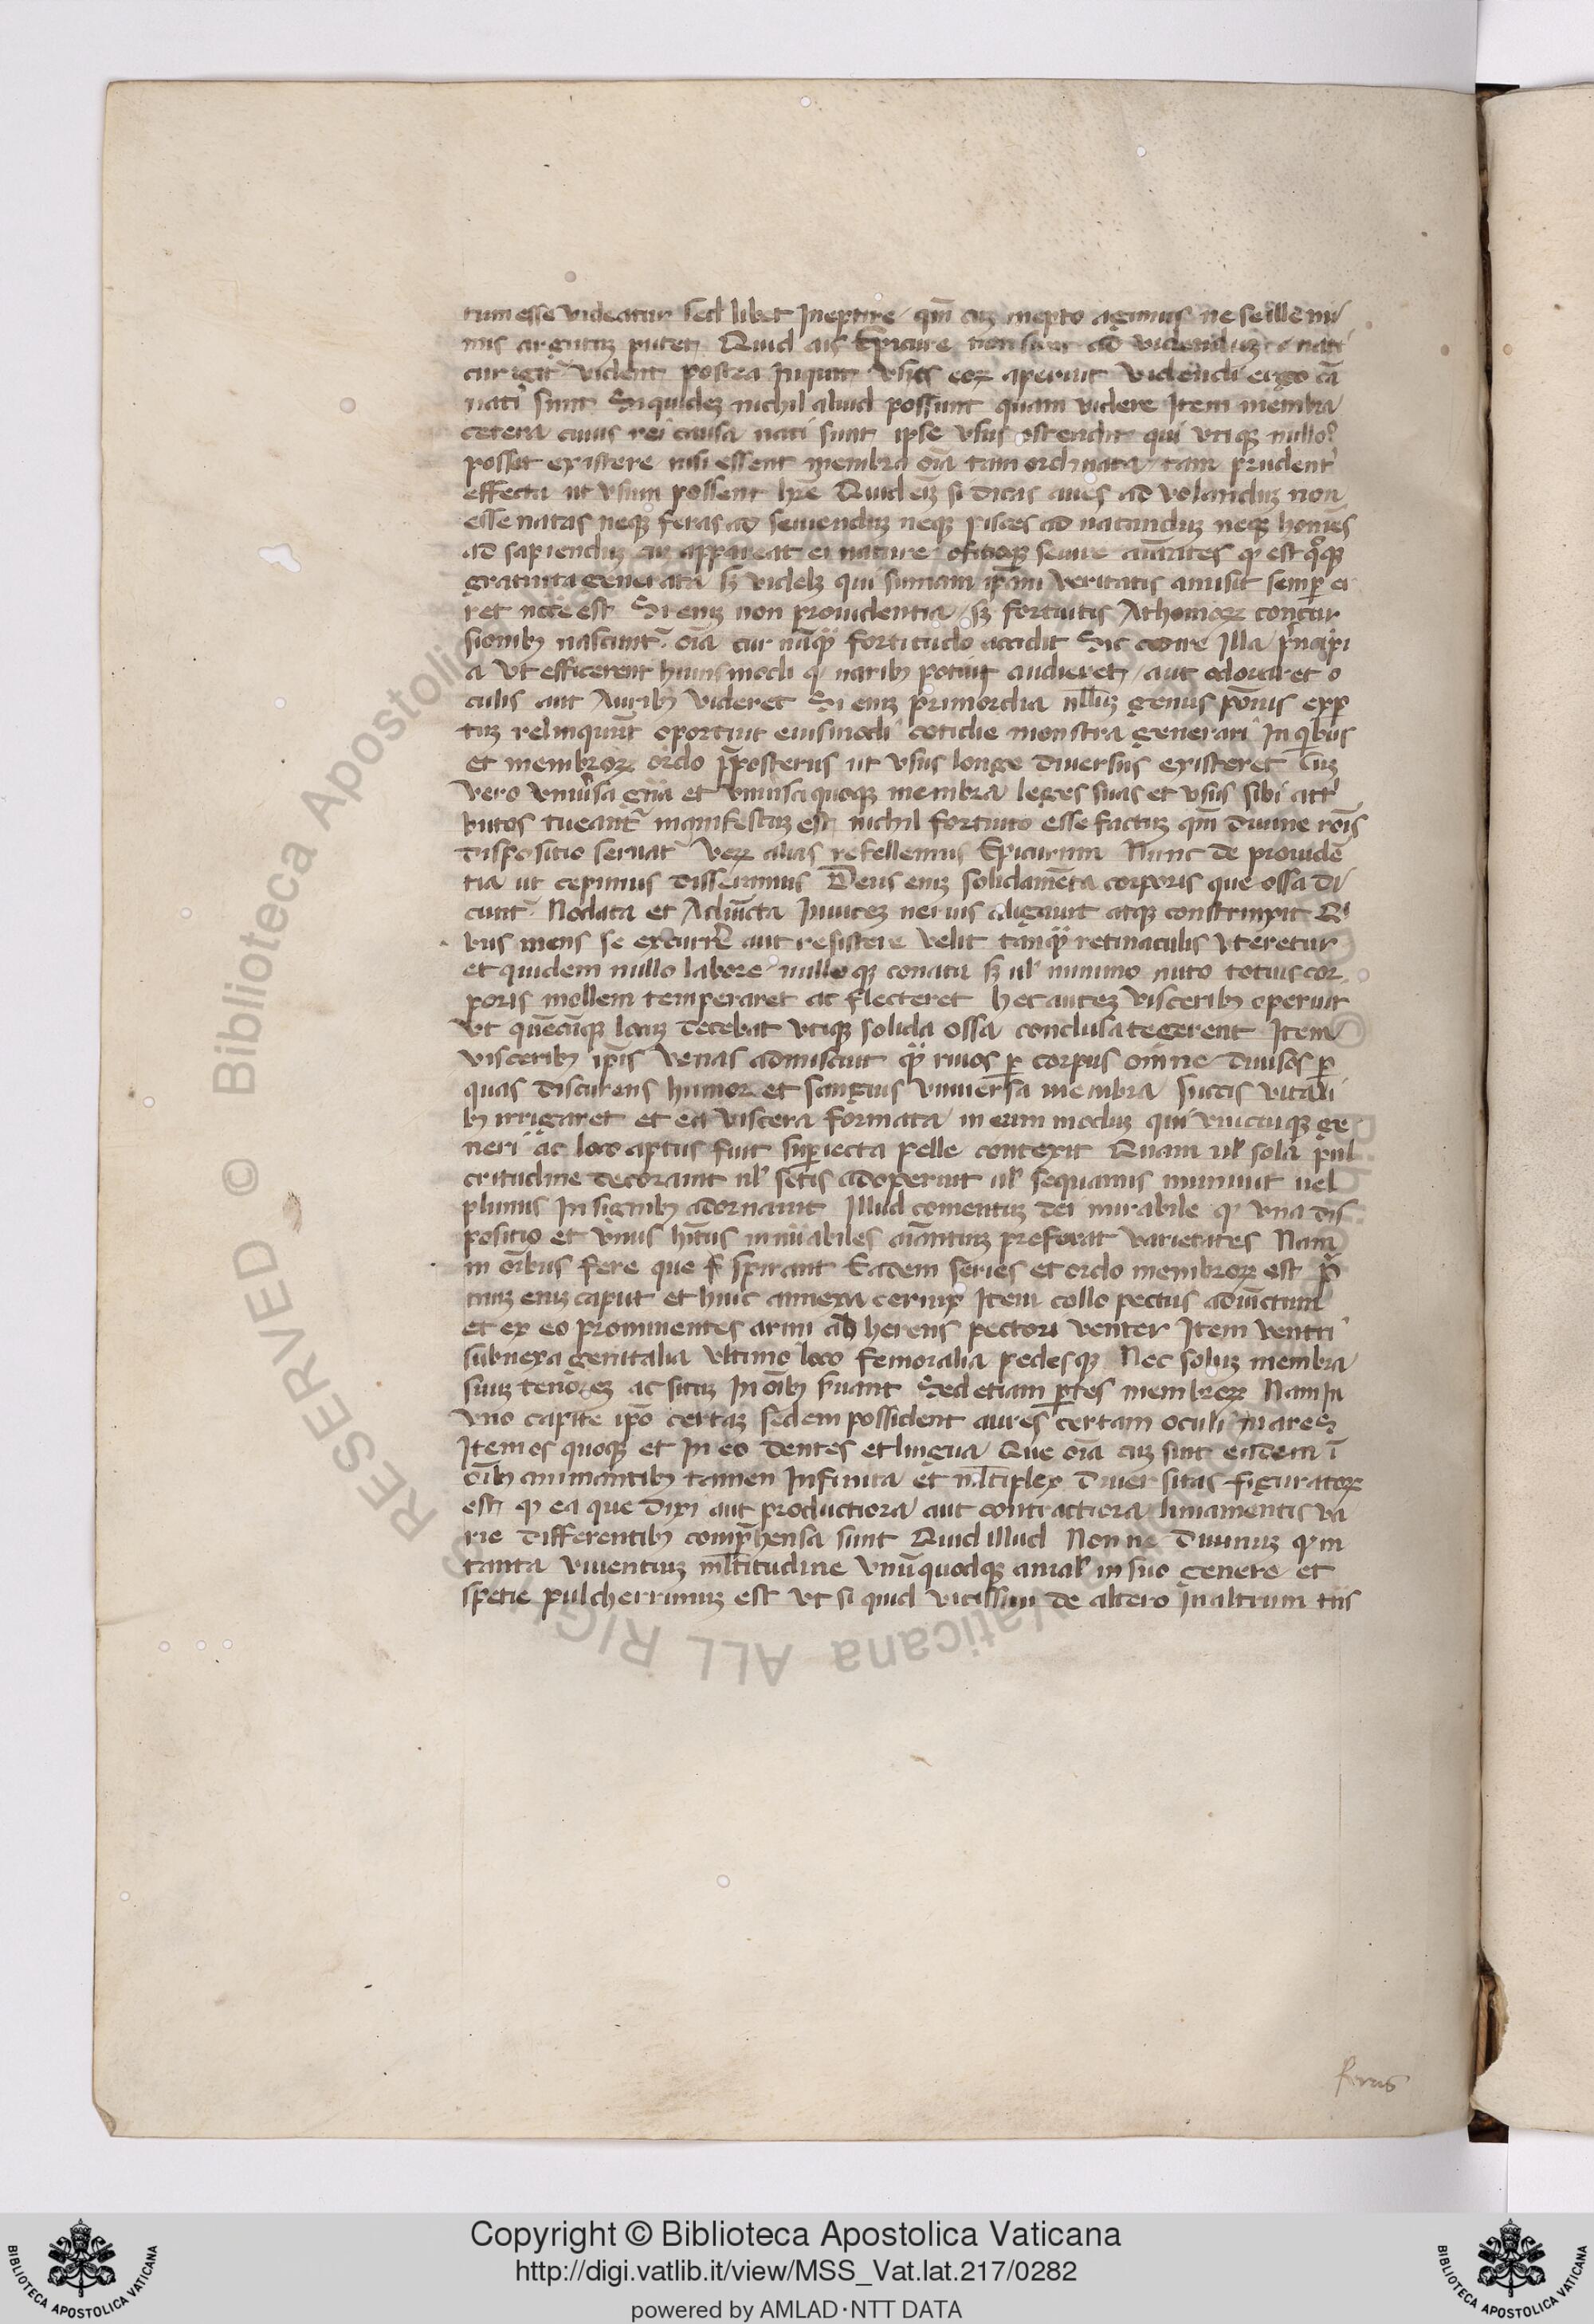 tum esse videatur sed libet Ineptire qm̄ cuꝫ inepto agimus ne se ille ni
mis argutuꝫ putet Quid ais Epicure non sunt ad videnduꝫ nati
cur igit̄ vident postea Inquit vsus eoꝝ aperuit videndi ergo cā
nati sunt Siquideꝫ nichil aliud possunt quam videre Item membra
cetera cuius rei causa nati sunt ipse vsus ostendit qui vtiqꝫ nullo
posset existere nisi essent membra oīa tam ordinata tam prudent̾
effecta ut vsum possent hr̄e Quid eiꝫ si dicas aues ad volanduꝫ non
esse natas neqꝫ feras ad seuienduꝫ neqꝫ pisces ad natanduꝫ neqꝫ homīes
ad sapienduꝫ cuꝫ appareat ei nature officioqꝫ seruire
generata sꝫ videlꝫ qui sumam ip̄am veritatis amisit semꝑ er
ret necesse est Si eniꝫ non prouidentia sꝫ fortuitis Athomoꝝ concur
sionibꝫ nascunt̄ oīa cur nūqͣꝫ fortitudo accidit Sic coire Illa prīcipi
a vt efficerent huiusmodi naribꝫ potius audieret aut odoraret o
culis aut Auribꝫ videret Si eniꝫ primordia nulluꝫ genus expꝑ
tuꝫ relinquūt oportuit eiusmodi cotidie monstra generari In quibus
et membroꝝ ordo p̄posterus ut vsus longe diuersus existeret Cuꝫ
vero vniuersa gn̄a et vniusciquoqꝫ membra leges suas et vsus sibi att̾
butos tueant̄ manifestuꝫ est nichil fortuito esse factuꝫ qm̄ diuine rōis
dispositio seruat̄ Veꝝ alias refellemus Epicurum Nunc de prouidē
tia ut cepimus disserimus Deus eniꝫ solidamēta corporis que ossa di
cunt̄ Nodata et Adiūcta Inuiceꝫ neruis aligauit atqꝫ constrinxit Qͥ
bus mens se excurr̄e aut resistere velit tanqͣꝫ retinaculis vteretur
et quidem nullo labore nulloqꝫ conatu sꝫ ul̾ minimo nuto totius cor
poris mollem temperaret ac flecteret hec auteꝫ visceribꝫ operuit
vt quēcūqꝫ locuꝫ decebat vtiqꝫ solida ossa conclusa tegerent Item
visceribꝫ ip̄is venas admiscuit qͣꝫ riuos ꝑ corpus omne diuisos ꝑ
quas discurens humor et sanguis vniuersa membra succis vitali
bꝫ irrigaret et ea viscera formata in eum moduꝫ qui vnicuiqꝫ ge
neri ac loco aptus fuit suꝑiecta pelle contexit Quam ul̾ sola pul
critudine decorauit ul̾ setis adoperuit ul̾ sequamis muniuit uel
plumis Insignibꝫ adornauit Illud comentuꝫ dei mirabile qͥ vna dis
positio et vnus hītus īnūiabiles aīantiuꝫ preferat varietates Nam
in oībus fere que spirant Eadem series et ordo membroꝝ est p̾
muꝫ eniꝫ caput et huic annexa ceruix Item collo pectus adiūctum
et ex eo prominentes armi adherens pectori venter Item ventri
subnexa genitalia vltimo loco femoralia pedesqꝫ Nec soluꝫ membra
suuꝫ tenoreꝫ ac situꝫ In oībꝫ s̾uant Sed etiam ꝑtes membroꝝ Nam In
vno capite ip̄o certaꝫ sedem possident aures certam oculi nares
Item os quoqꝫ et In eo dentes et lingua Que oīa cuꝫ sint eadem ī
oībꝫ animantibꝫ tamen Infinita et ml̄tiplex diuersitas figuratoꝝ
est qͥ ea que dixi aut productiora aut contractiora liniamentis va
rie differentibꝫ comp̄hensa sunt Quid illud Nonne diuinuꝫ qͥ in
tanta viuentiuꝫ ml̄titudine vnūquodqꝫ animal̾ in suo genere et
spetie pulcherrimuꝫ est vt si quid vicissim de altero In altrum tn̄s
ferus